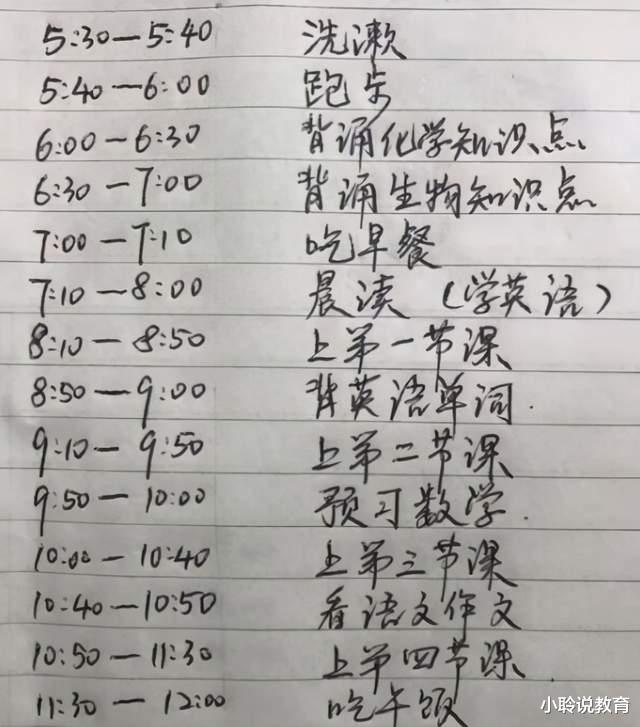 5:30—5:40 洗漱
5:40—6:00 跑步
6:00—6:30 背诵化学知识点
6:30—7:00 背诵生物知识点
7:00—7:10 吃早餐
7:10—8:00 晨读（学英语）
8:10—8:50 上第一节课
8:50—9:00 背英语单词.
9:10—9:50 上第二节课
9:50—10:00 预习数学.
10:00—10:40 上第三节课
10:40—10:50 看语文作文
10:50—11:30 上第四节课
11:30—12:00 吃午饭
小聆说教育